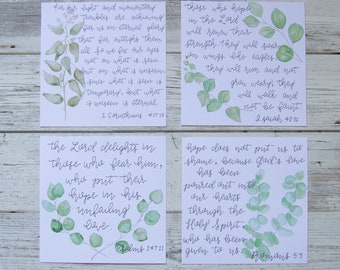 for our light and momentary
troubles are achieving
for us an eternal glory
that far outweighs them
all. So we fix our eyes
not on what is seen,
but on what is unseen,
since what is seen is
temporary, but what
is unseen is eternal.
2 Corinthians 4:17-18
those who hope
in the Lord
will renew their
strength. They will soar
on wings like eagles
they will run and not
grow weary, they
will walk and
not be faint
Isaiah 40:31
the Lord delights in
those who fear him,
who put their
hope in his
unfailing
love
Psalms 147:11
hope does not put us to
shame, because God's love
has been
poured out into
our hearts
through the
Holy Spirit,
who has been
given to us
Romans 5:5